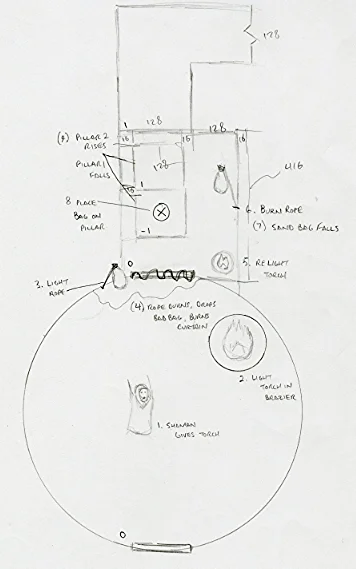 128
1 128 128
16 16 16
(9) PILLAR 2
RISES
128
PILLAR 1
FALLS
416
1
8 PLACE
BAG ON
PILLAR
6. BURN ROPE
(7) SAND BAG FALLS
-1
0
5. RELIGHT
TORCH
3. LIGHT
ROPE
(4) ROPE BURNS, DROPS
BAG, BURNS
CURTAIN
2. LIGHT
TORCH IN
BRAZIER
1. SHAMAN
GIVES TORCH
0